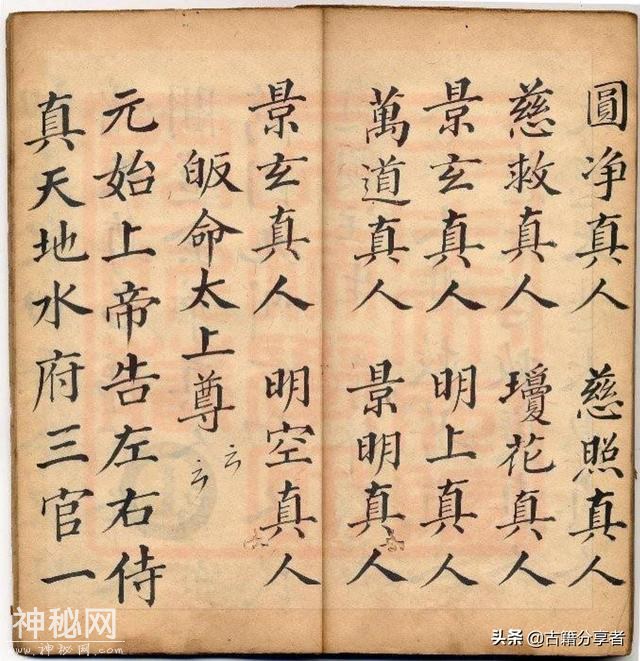 圓净真人 慈照真人
慈救真人 瓊花真人
景玄真人 明上真人
萬道真人 景明真人
景玄真人 明空真人
皈命太上尊 云云
元始上帝告左右侍
真天地水府三官一
神秘网
www.神秘网.com
头条 @古籍分享者